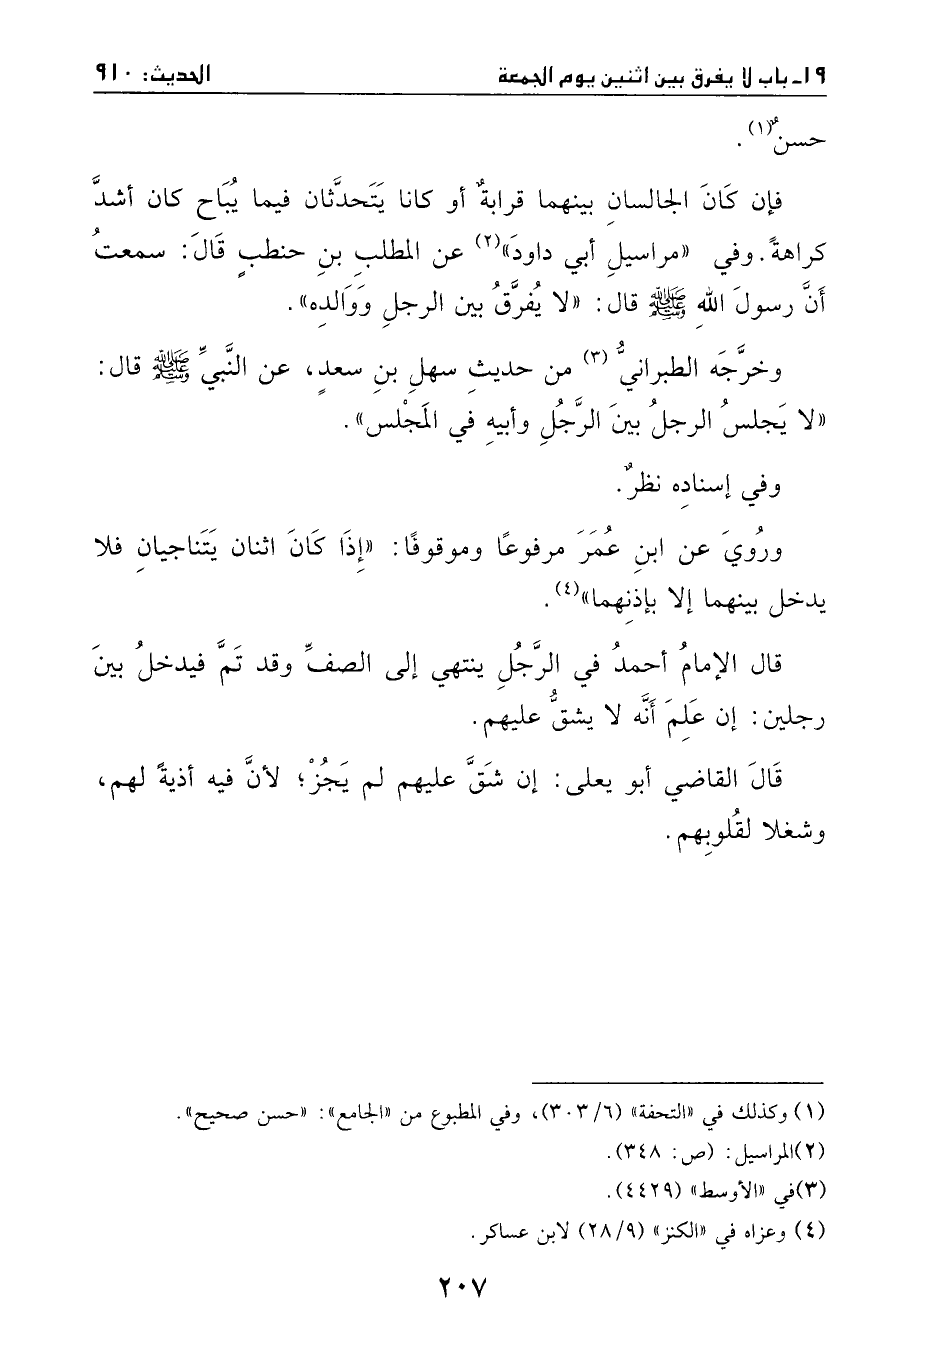 ١٩- باب لا يفرق بين اثنين يوم الجمعة الحديث: ٩١٠
حسنٌ(١).
فإن كَانَ الجالسانِ بينهما قرابةٌ أو كانا يَتَحدَّثان فيما يُبَاح كان أشدَّ
كراهةً. وفي «مراسيلِ أبي داودَ»(٢) عن المطلبِ بنِ حنطبٍ قَالَ: سمعتُ
أنَّ رسولَ اللهِ ﷺ قال: «لا يُفرَّقُ بين الرجلِ وَوَالدِه».
وخرَّجَه الطبرانيُّ (٣) من حديثِ سهلِ بنِ سعدٍ، عن النَّبيِّ ﷺ قال:
«لا يَجلسُ الرجلُ بينَ الرَّجُلِ وأبيهِ في المَجْلس».
وفي إسنادِه نظرٌ.
ورُويَ عن ابنِ عُمَرَ مرفوعًا وموقوفًا: «إِذَا كَانَ اثنان يَتَناجيانِ فلا
يدخل بينهما إلا بإذنِهما»(٤).
قال الإمامُ أحمدُ في الرَّجُلِ ينتهي إلى الصفِّ وقد تَمَّ فيدخلُ بينَ
رجلين: إن عَلِمَ أَنَّه لا يشقُّ عليهم.
قَالَ القاضي أبو يعلى: إن شَقَّ عليهم لم يَجُزْ؛ لأنَّ فيه أذيةً لهم،
وشغلا لقُلوبِهم.
(١) وكذلك في «التحفة» (٦/ ٣٠٣)، وفي المطبوع من «الجامع»: «حسن صحيح».
(٢)المراسيل: (ص: ٣٤٨).
(٣)في «الأوسط» (٤٤٢٩).
(٤) وعزاه في «الكنز» (٢٨/٩) لابن عساكر.
٢٠٧